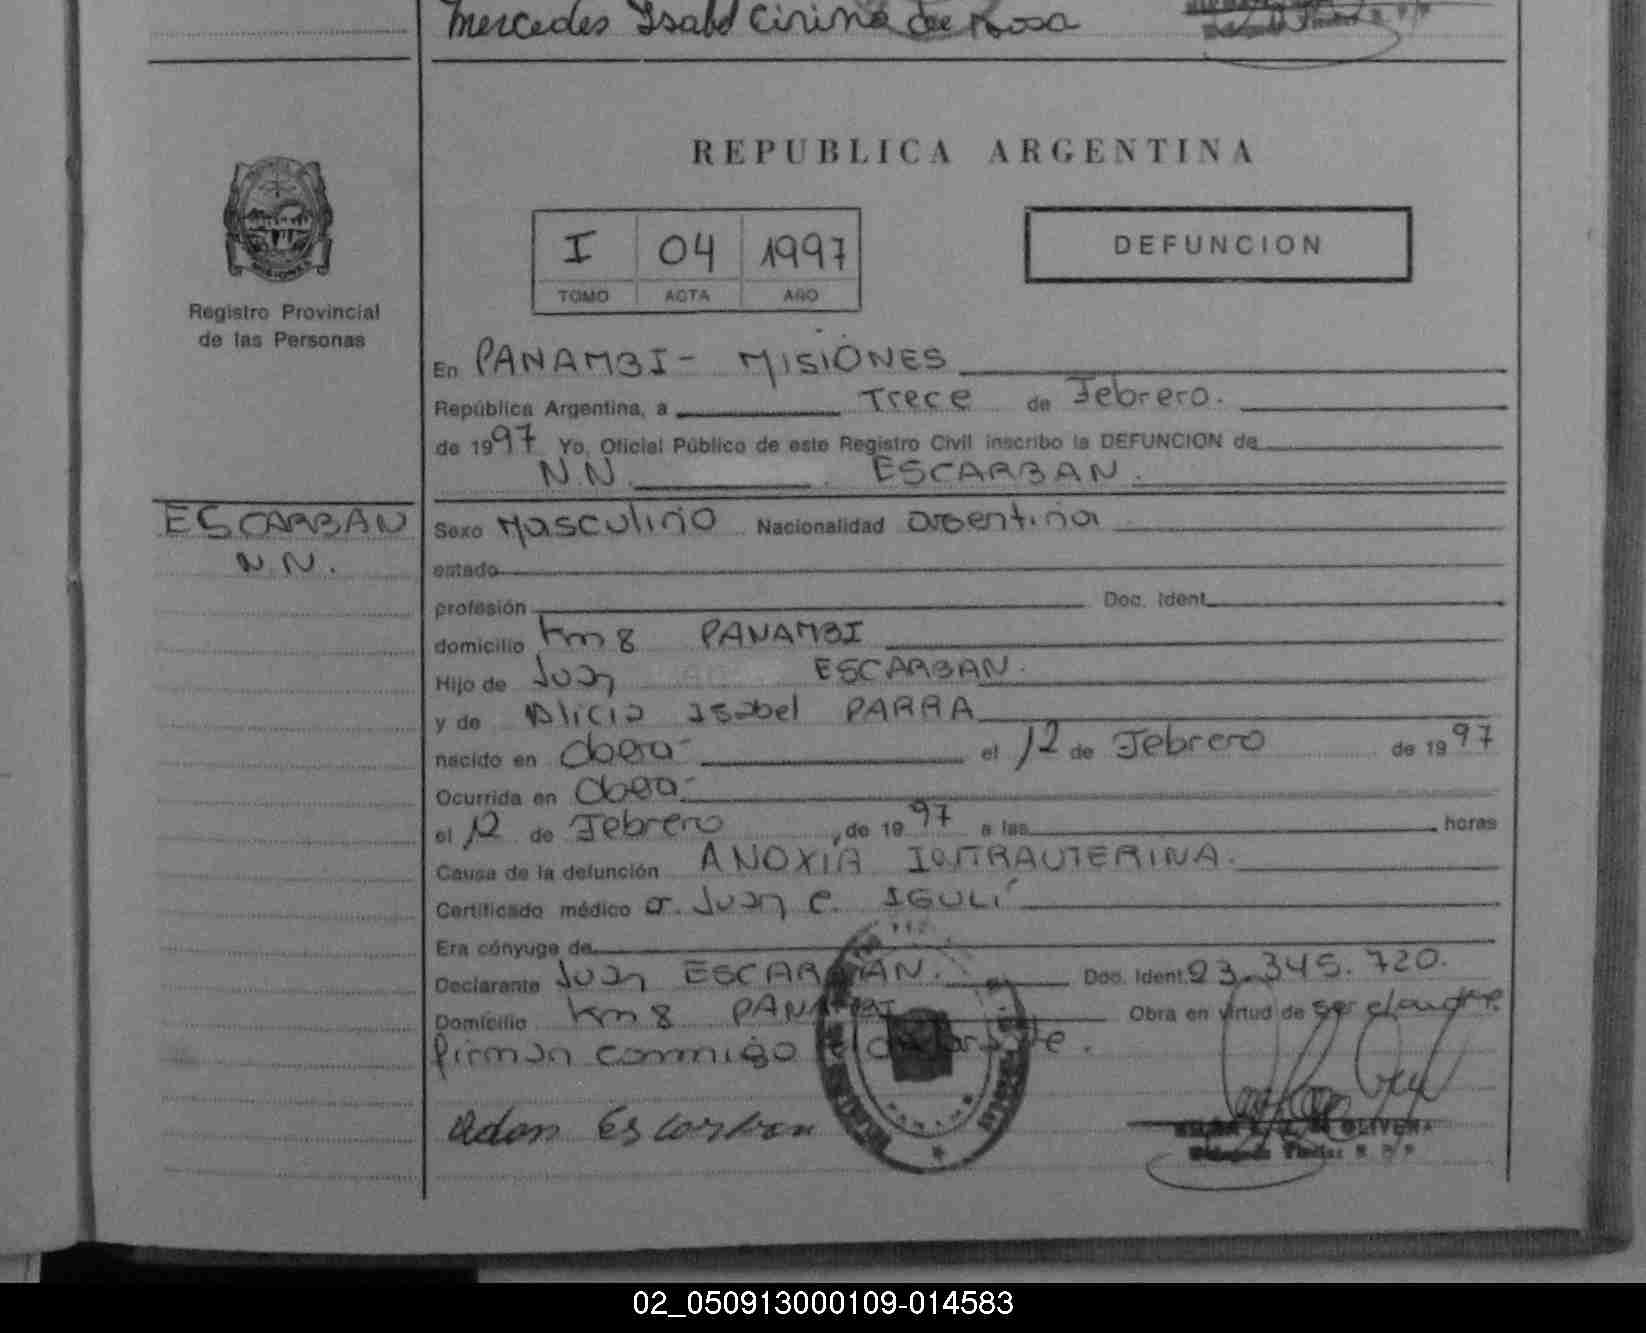 Mercedes Isabel Cirina de Rosa
REPUBLICA ARGENTINA
I 04 1997
TOMO ACTA AÑO
DEFUNCION
MISIONES
Registro Provincial
de las Personas
En PANAMBI - MISIONES
República Argentina, a Trece de Febrero.
de 1997 Yo, Oficial Público de este Registro Civil inscribo la DEFUNCION de
N.N. ESCARBAN.
ESCARBAN
N.N.
Sexo Masculino Nacionalidad argentina
estado
profesión Doc. Ident.
domicilio Km 8 PANAMBI
Hijo de Juan ESCARBAN.
y de Alicia Isabel PARRA
nacido en Obera- el 12 de Febrero de 1997
Ocurrida en Obera-
el 12 de Febrero de 1997 a las horas
Causa de la defunción ANOXIA INTRAUTERINA.
Certificado médico Dr. Juan C. IGULÍ
Era cónyuge de
Declarante Juan ESCARBAN. Doc. Ident. 23.345.720.
Domicilio Km 8 PANAMBI Obra en virtud de ser el padre.
firman conmigo el declarante.
Adan Escarban
OLIVERA
02_050913000109-014583